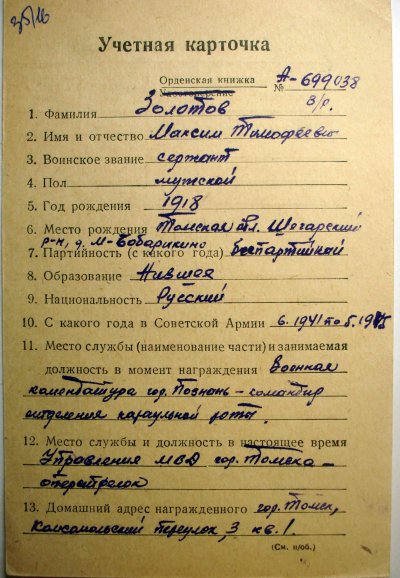 35/16
Учетная карточка
Орденская книжка
Удостоверение № А-699038
в/р.
1. Фамилия Золотов
2. Имя и отчество Максим Тимофеевич
3. Воинское звание сержант
4. Пол мужской
5. Год рождения 1918
6. Место рождения Томская обл. Шегарский
р-н, д. М-Бобарикино
7. Партийность (с какого года) беспартийный
8. Образование Низшее
9. Национальность Русский
10. С какого года в Советской Армии 6.1941 по 5.1945
11. Место службы (наименование части) и занимаемая
должность в момент награждения Военная
комендатура гор. Познань – командир
отделения караульной роты.
12. Место службы и должность в настоящее время
Управления МВД гор. Томска –
13. Домашний адрес награжденного гор. Томск,
Комсомольский переулок, 3 кв. 1.
(См. н/об.)